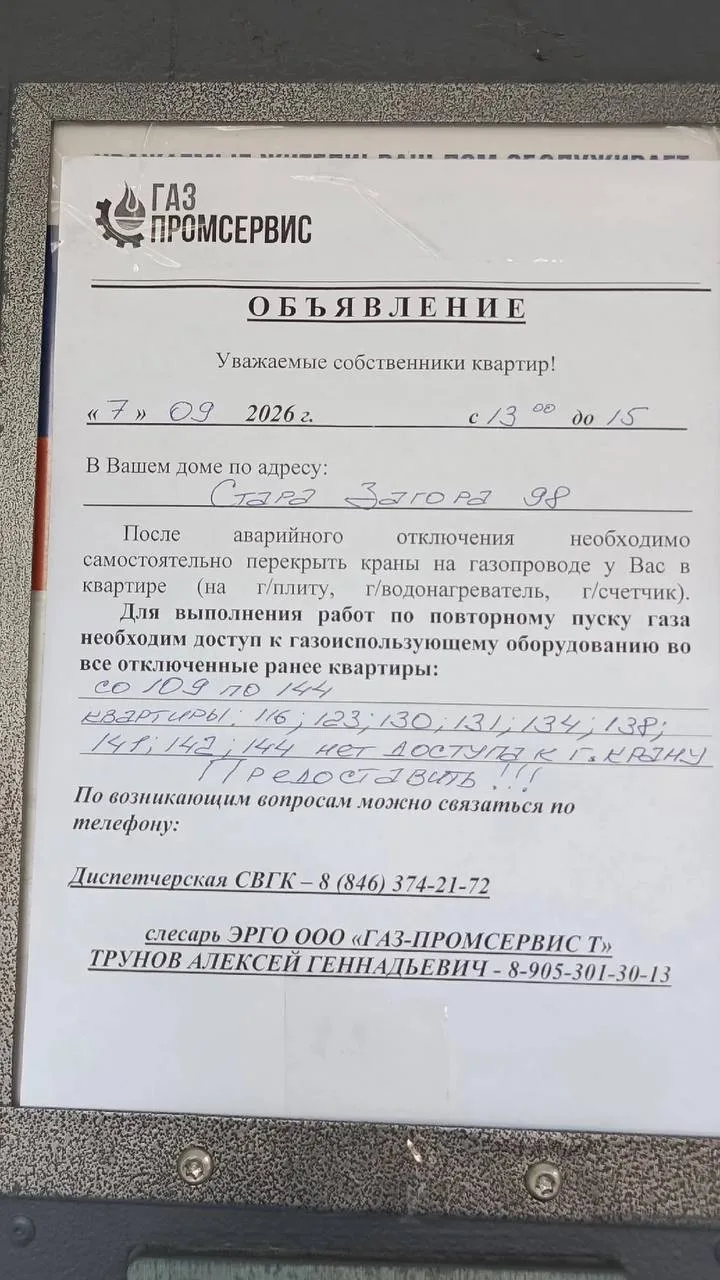 УВАЖАЕМЫЕ ЖИТЕЛИ! ВАШ ДОМ ОБСЛУЖИВАЕТ
ГАЗ
ПРОМСЕРВИС
ОБЪЯВЛЕНИЕ
Уважаемые собственники квартир!
«7» 09 2026 г. с 13 00 до 15
В Вашем доме по адресу:
Стара Загора 98
После аварийного отключения необходимо
самостоятельно перекрыть краны на газопроводе у Вас в
квартире (на г/плиту, г/водонагреватель, г/счетчик).
Для выполнения работ по повторному пуску газа
необходим доступ к газоиспользующему оборудованию во
все отключенные ранее квартиры:
со 109 по 144
квартиры: 116; 123; 130; 131; 134; 138;
141; 142; 144 нет доступа к г. крану
Предоставить!!!
По возникающим вопросам можно связаться по
телефону:
Диспетчерская СВГК – 8 (846) 374-21-72
слесарь ЭРГО ООО «ГАЗ-ПРОМСЕРВИС Т»
ТРУНОВ АЛЕКСЕЙ ГЕННАДЬЕВИЧ - 8-905-301-30-13